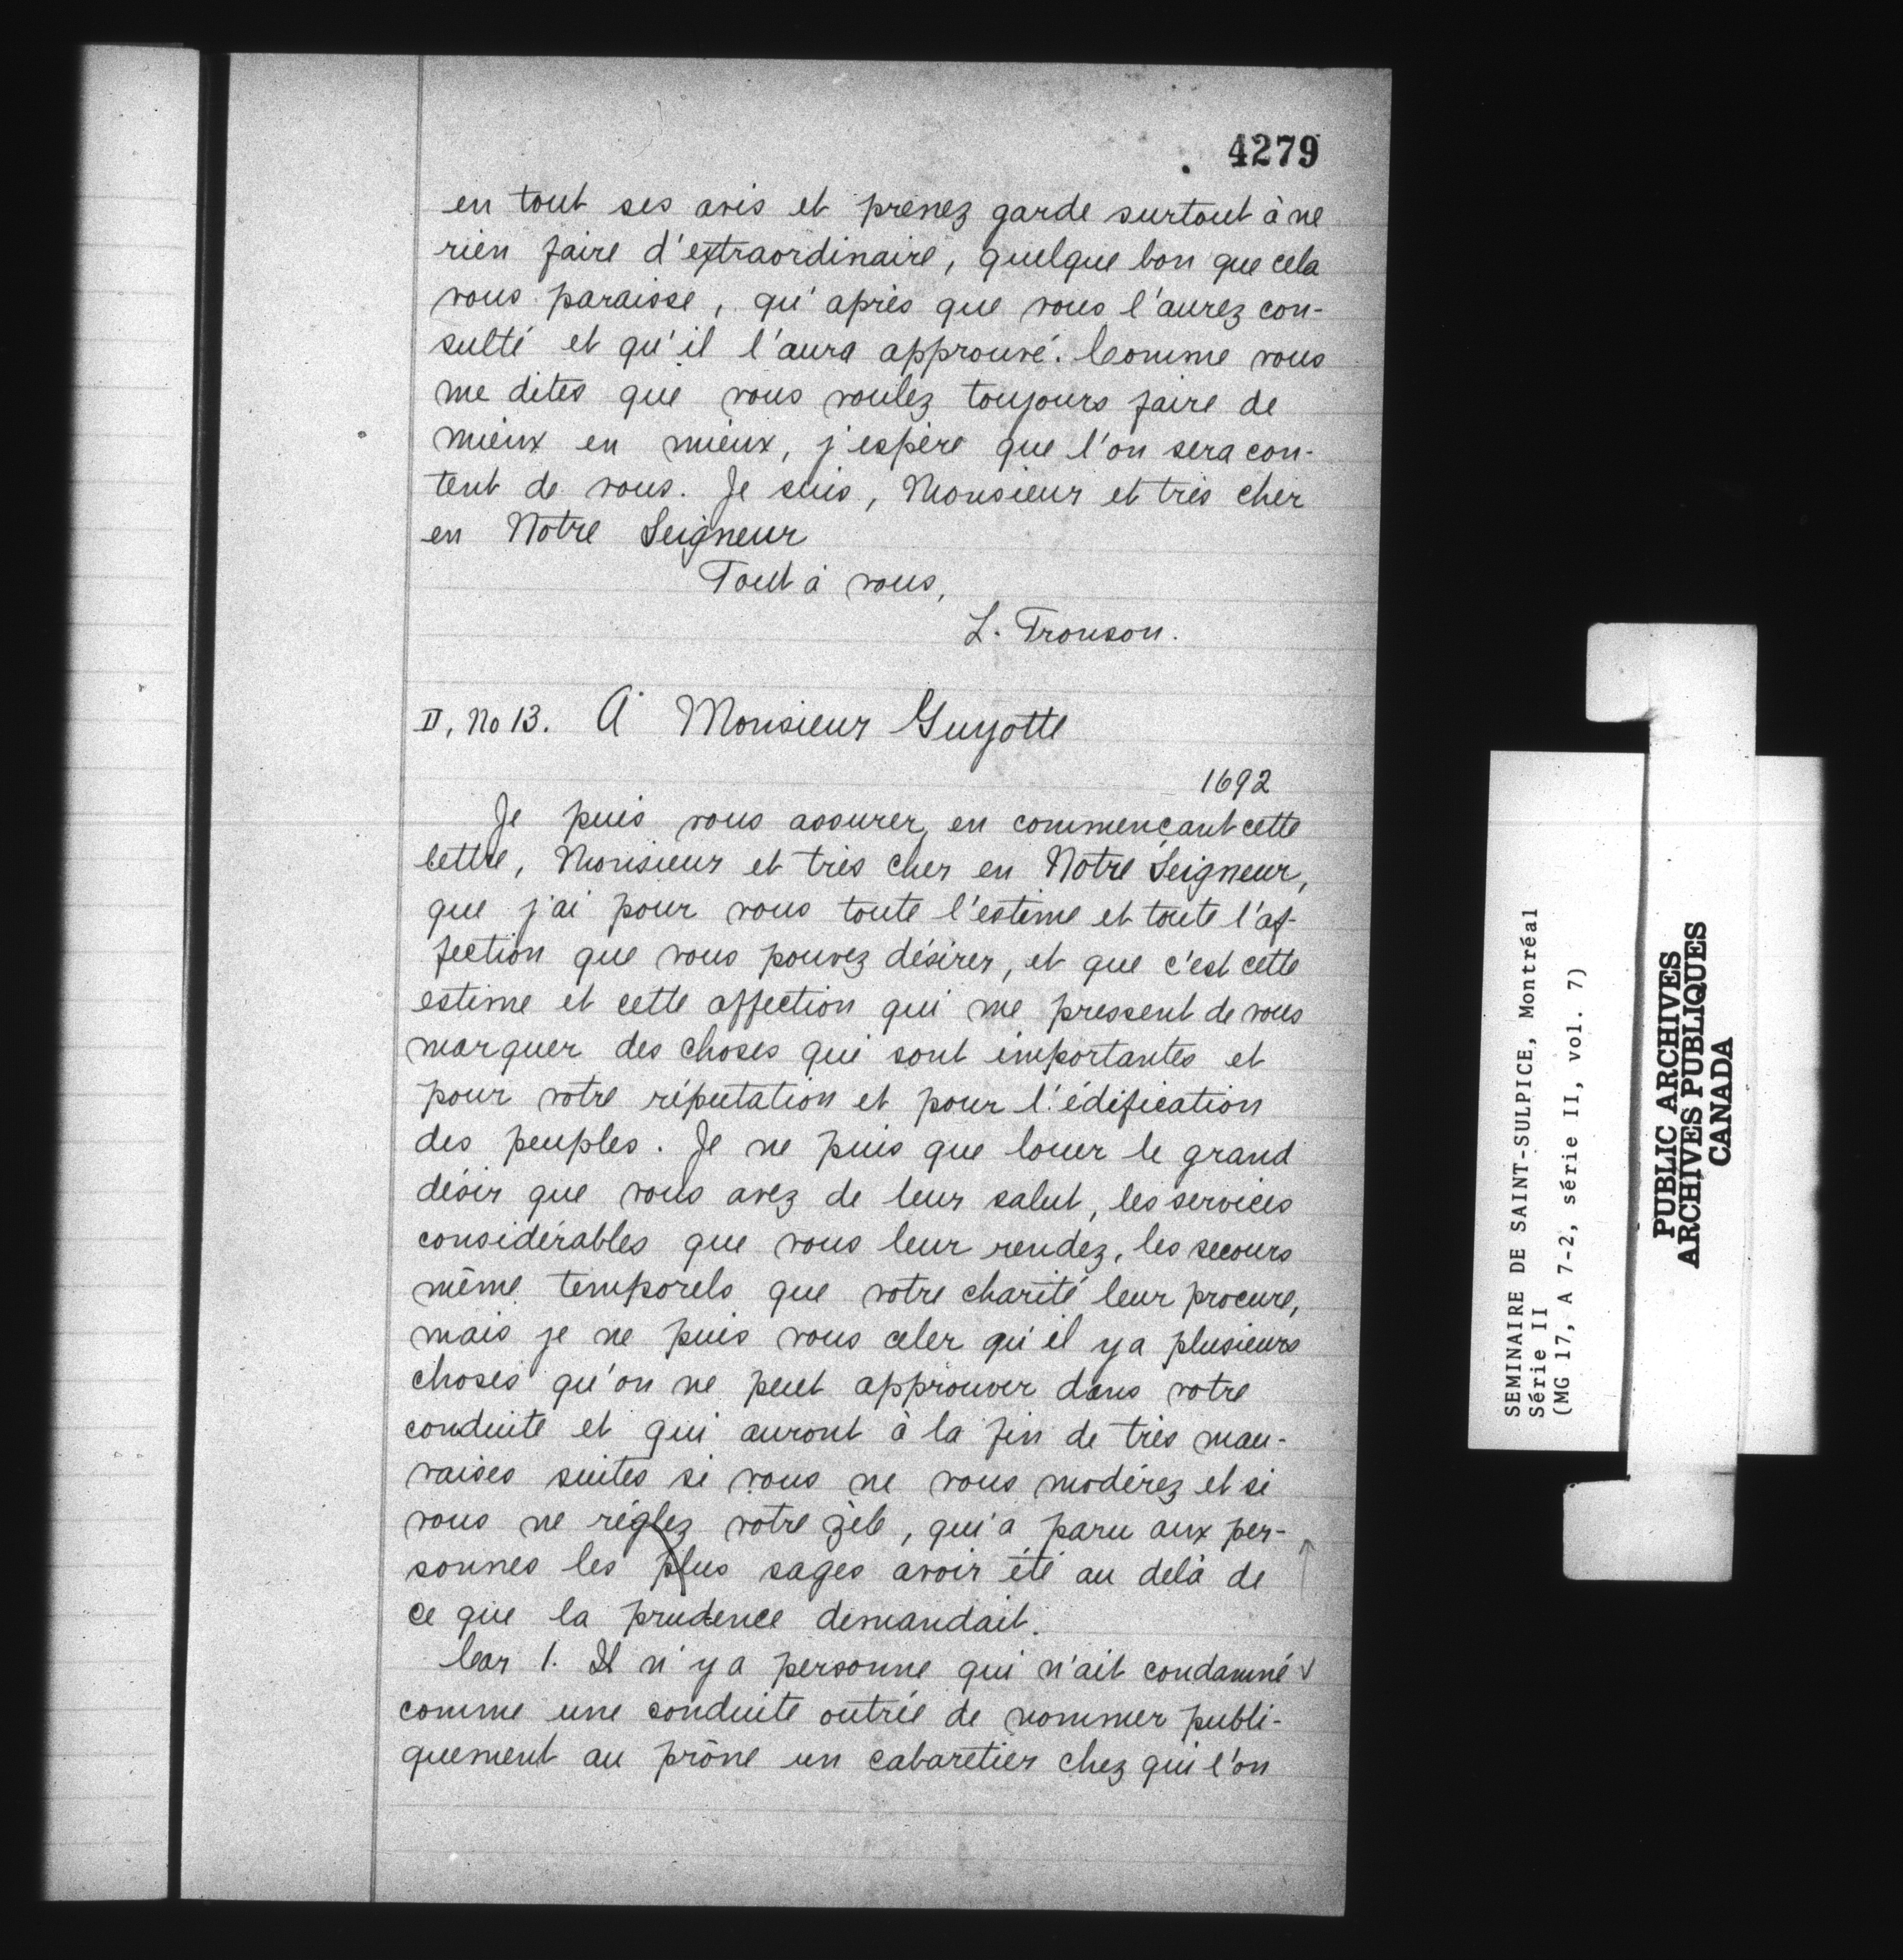 4279
en tout ses avis et prenez garde surtout à ne
rien faire d'extraordinaire, quelque bon que cela
vous paraisse, qu'après que vous l'aurez con-
sulté et qu'il l'aura approuvé. Comme vous
me dites que vous voulez toujours faire de
mieux en mieux, j'espère que l'on sera con-
tent de vous. Je suis, Monsieur et très cher
en Notre Seigneur
Tout à vous,
L. Tronson.
II, No 13. A Monsieur Guyotte
1692
Je puis vous assurer, en commençant cette
lettre, Monsieur et très cher en Notre Seigneur,
que j'ai pour vous toute l'estime et toute l'af-
fection que vous pouvez désirer, et que c'est cette
estime et cette affection qui me pressent de vous
marquer des choses qui sont importantes et
pour votre réputation et pour l'édification
des peuples. Je ne puis que louer le grand
désir que vous avez de leur salut, les services
considérables que vous leur rendez, les secours
même temporels que votre charité leur procure,
mais je ne puis vous celer qu'il y a plusieurs
choses qu'on ne peut approuver dans votre
conduite et qui auront à la fin de très mau-
vaises suites si vous ne vous modérez et si
vous ne réglez votre zèle, qui a paru aux per-
sonnes les plus sages avoir été au delà de
ce que la prudence demandait.
Car 1. Il n'y a personne qui n'ait condamné
comme une conduite outrée de nommer publi-
quement au prône un cabaretier chez qui l'on
SEMINAIRE DE SAINT-SULPICE, Montréal
Série II
(MG 17, A 7-2, série II, vol. 7)
PUBLIC ARCHIVES
ARCHIVES PUBLIQUES
CANADA